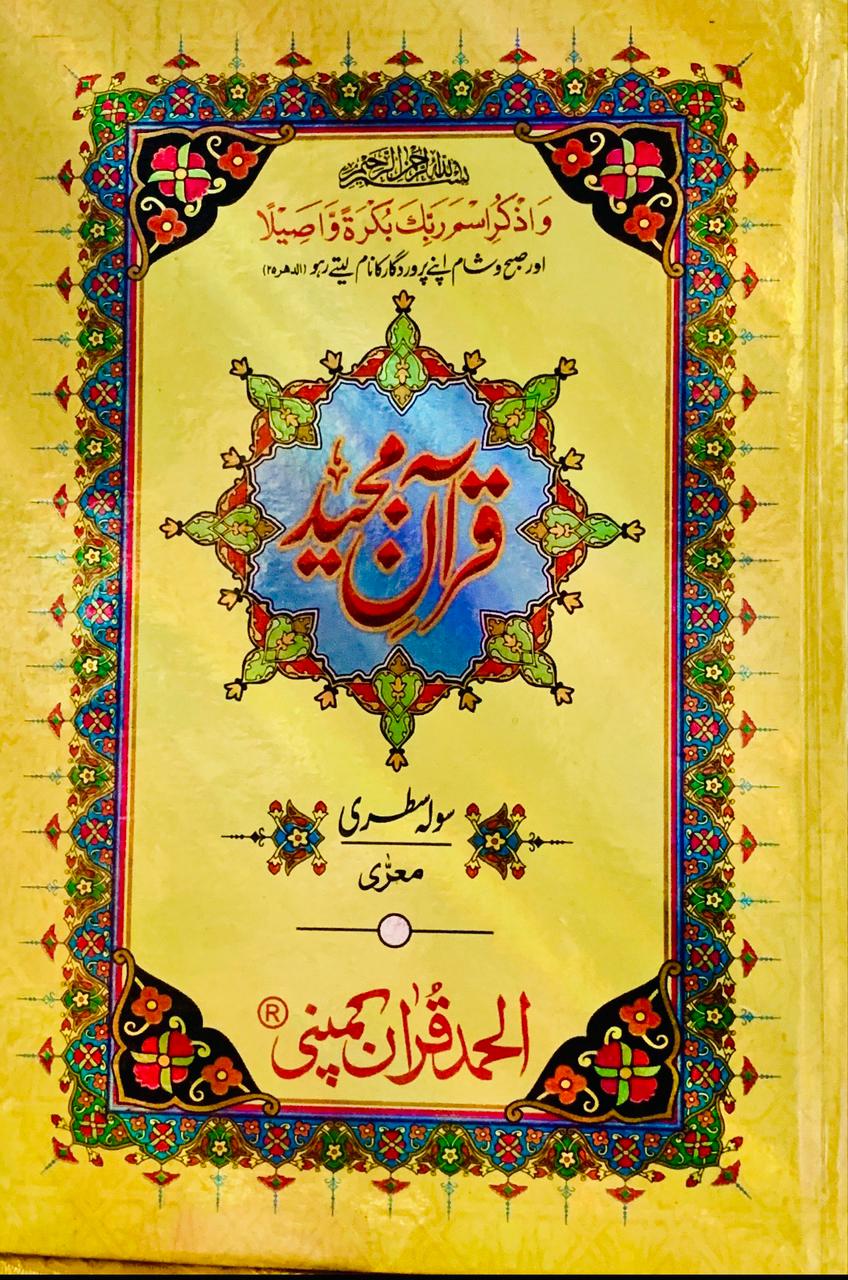 بسم الله الرحمن الرحيم
وَاذْكُرِ اسْمَ رَبِّكَ بُكْرَةً وَّاَصِيْلًا
اور صبح و شام اپنے پروردگار کا نام لیتے رہو (الدھر ۲۵)
قرآنِ مجید
سولہ سطری
معرّٰی
الحمد قُرآن کمپنی ®